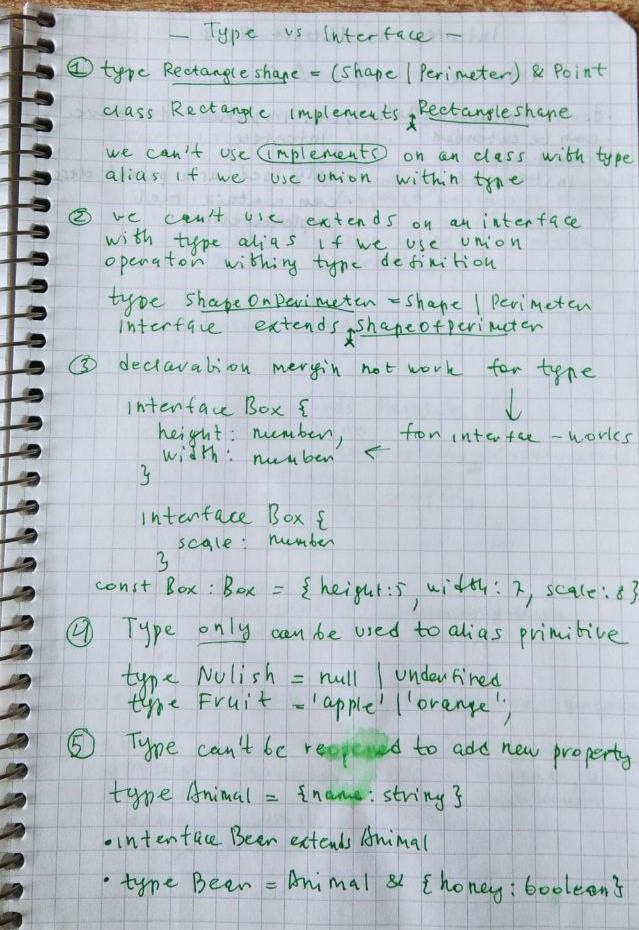 — Type vs Interface —
① type Rectangleshape = (Shape | Perimeter) & Point
class Rectangle implements Rectangleshape
we can't use implements on an class with type
alias if we use union within type
② we can't use extends on an interface
with type alias if we use union
operator withing type definition
type ShapeOrPerimeter = Shape | Perimeter
Interface extends ShapeOfperimeter
③ declaration mergin not work for type
↓
interface Box {
height: number, for interfae - works
width: number ←
}
interface Box {
scale: number
}
const Box : Box = {height:5, width: 7, scale: 8}
④ Type only can be used to alias primitive
type Nulish = null | undefined
type Fruit = 'apple' | 'orange';
⑤ Type can't be reopened to add new property
type Animal = {name: string}
• interface Bear extends Animal
• type Bear = Animal & {honey: boolean}